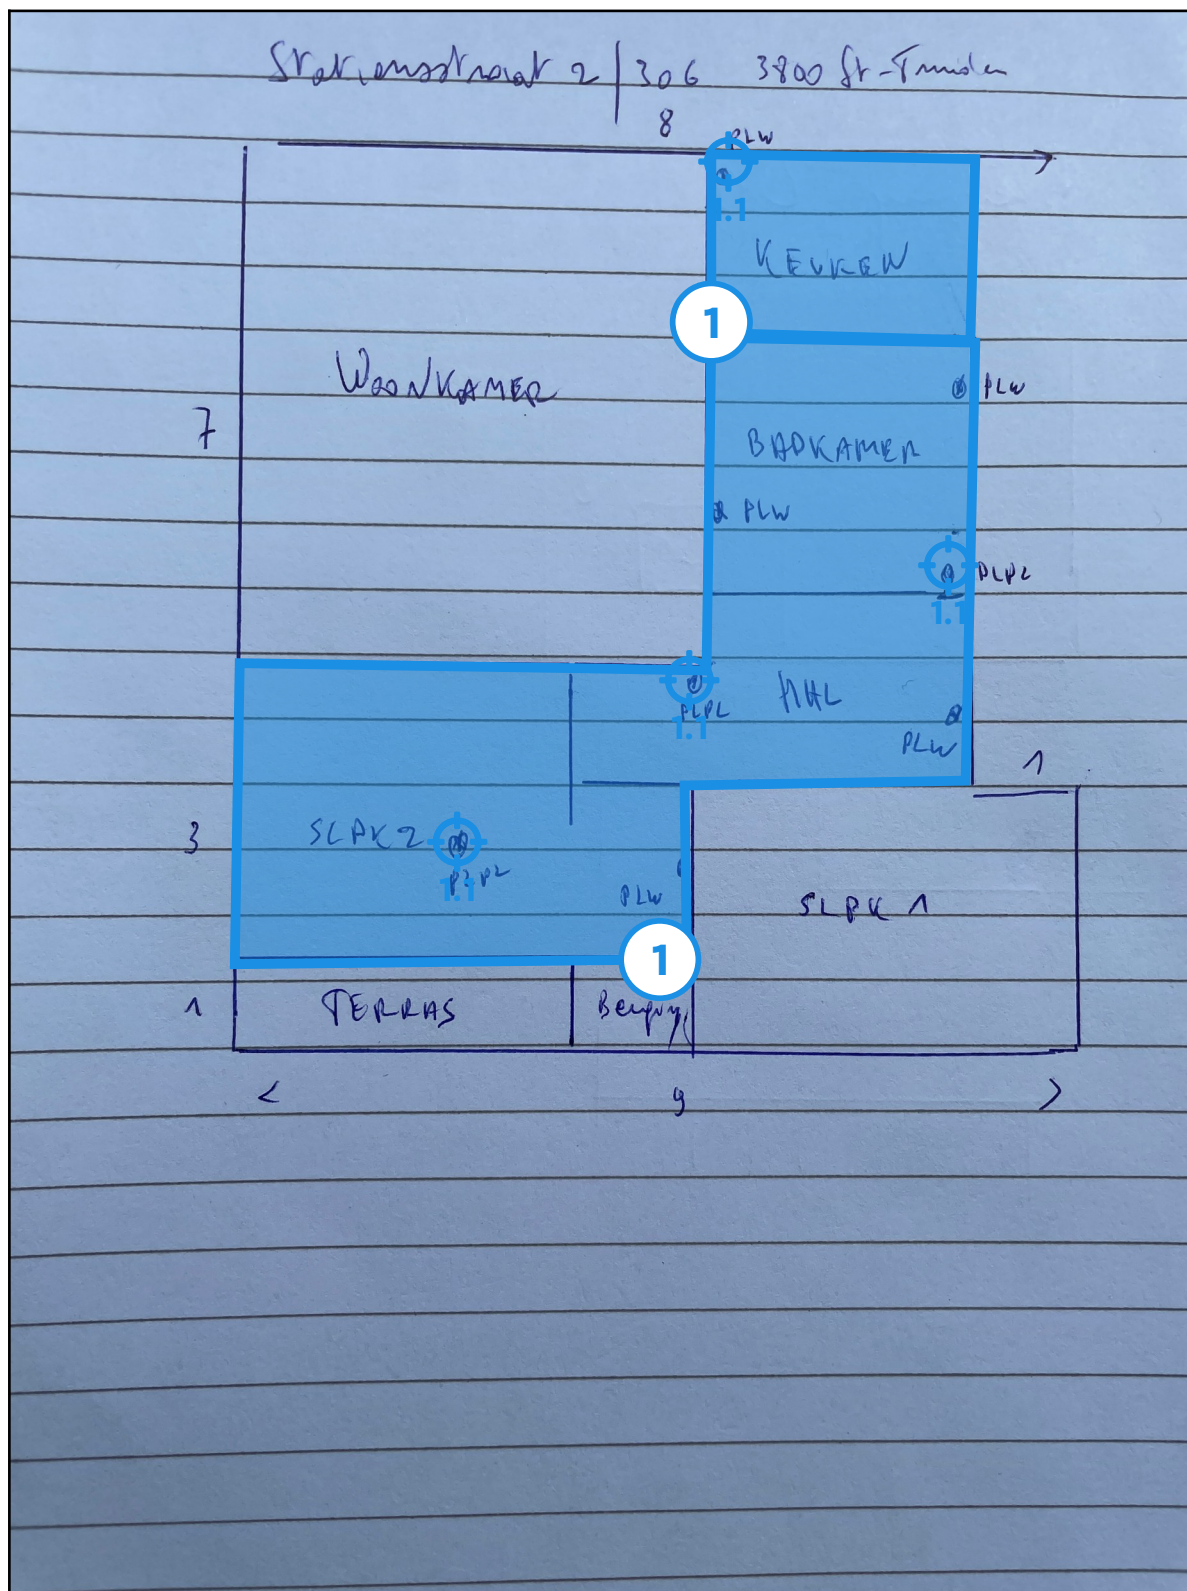 Stationsstraat 2 | 306 3800 St-Truiden
8
PLW
1.1
KEUKEN
1
WOONKAMER
PLW
7
BADKAMER
PLW
PLPL
1.1
HAL
PLPL
1.1
PLW
1
3
SLPK 2
PLPL
1.1
PLW
SLPK 1
1
1
TERRAS
Berging
< 9 >